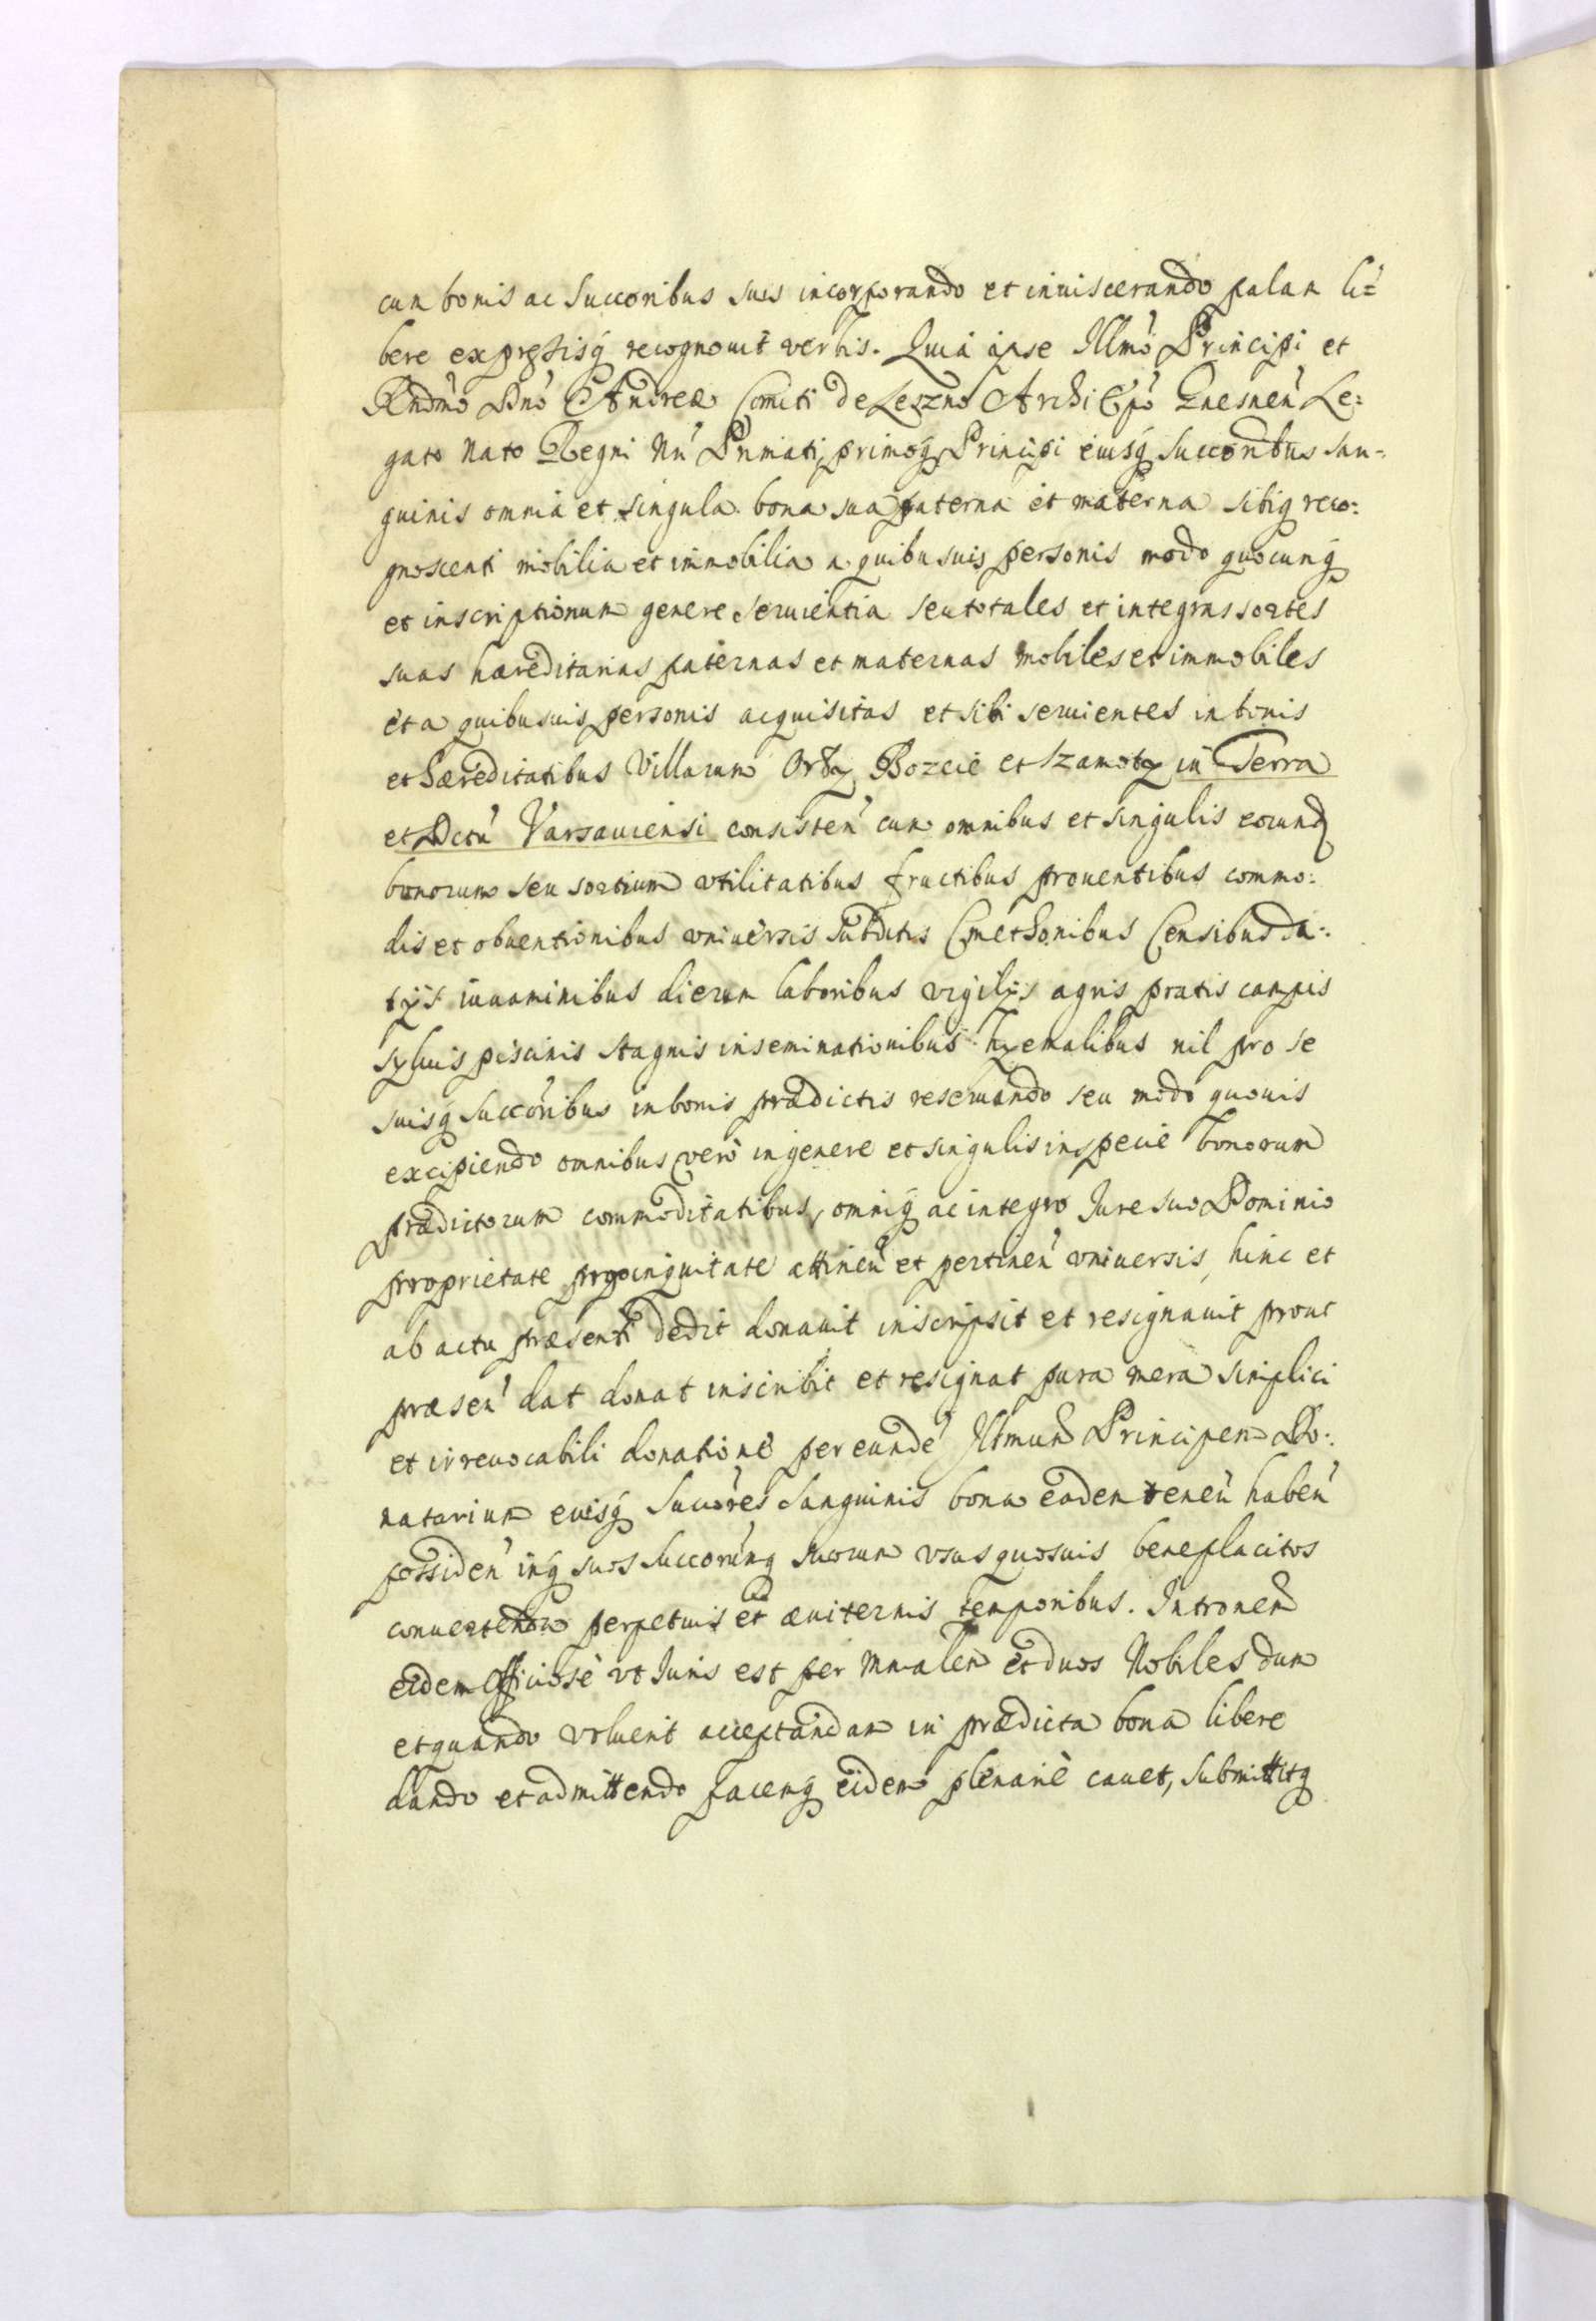 cum bonis ac Succoribus suis incorporando et inuiscerando palam li=
bere expressisq recognouit verbis. Quia ipse Illmo Principi et
Rndmo Dno Andreæ Comiti de Leszno Archi Epo Gnesnen Le=
gato Nato Regni Primati primoq Principi eiusq Succoribus san=
guinis omnia et singula bona sua paterna et materna sibiq reco=
gnoscenti mobilia et immobilia a quibusuis personis modo quocunq
et inscriptionum genere seruientia seu totales et integras sortes
suas hæreditarias paternas et maternas mobiles et immobiles
et a quibusuis personis acquisitas et sibi seruientes in bonis
et hæreditatibus Villarum Orły Bozcie et Szamoty in Terra
et Dctu Varsauiensi consisten cum omnibus et singulis eorund
bonorum seu sortium vtilitatibus fructibus prouentibus commo=
dis et obuentionibus vniuersis subditis Cmethonibus Censibus da=
tijs iuuaminibus dierum laboribus vigilijs agris pratis campis
syluis piscinis stagnis inseminationibus hyemalibus nil pro se
suisq succoribus in bonis prædictis reseruando seu modo quouis
excipiendo omnibus vero in genere et singulis in specie bonorum
prædictorum commoditatibus, omniq ac integro Iure suo Dominio
proprietate propinquitate attinen et pertinen vniuersis, hinc et
ab actu præsenti dedit donauit inscripsit et resignauit prout
præsen dat donat inscribit et resignat pura mera simplici
et irreuocabili donatione per eunde Illmum Principem Do=
natarium eiusq Succores sanguinis bona eadem tenen haben
possiden inq suos Succorumq suorum vsus quosuis beneplacitos
conuertenda perpetuis et æuiternis temporibus. Intromen
eidem Officiose vt Iuris est per Mnralem et duos Nobiles dum
et quando voluerit acceptandam in prædicta bona libere
dando et admittendo pacemq eidem plenarie cauet, submittitq